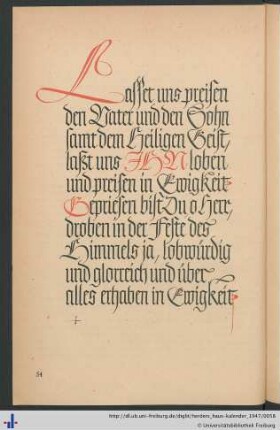 Lasset uns preisen
den Vater und den Sohn
samt dem Heiligen Geist,
laßt uns IHN loben
und preisen in Ewigkeit.
Gepriesen bist Du o Herr,
droben in der Feste des
Himmels ja, lobwürdig
und glorreich und über
alles erhaben in Ewigkeit.
54
http://dl.ub.uni-freiburg.de/diglit/herders_haus-kalender_1947/0058
© Universitätsbibliothek Freiburg